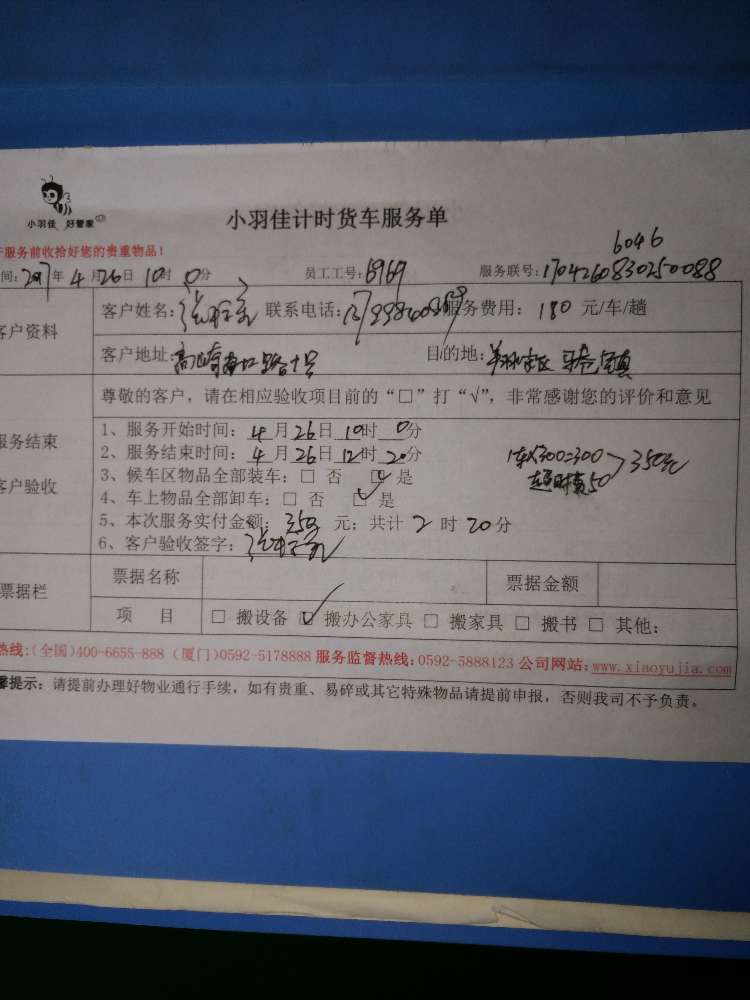 小羽佳 好管家
小羽佳计时货车服务单
服务前收拾好您的贵重物品！
6046
间：2017年4月26日10时0分 员工工号：6969 服务联号：1704260830250088
客户资料
客户姓名：张 联系电话： 服务费用：180元/车/趟
客户地址： 目的地：
尊敬的客户，请在相应验收项目前的“□”打“√”，非常感谢您的评价和意见
服务结束
客户验收
1、服务开始时间：4月26日10时0分
2、服务结束时间：4月26日12时20分
3、候车区物品全部装车：□ 否 □ 是
4、车上物品全部卸车：□ 否 □ 是
5、本次服务实付金额：350元；共计2时20分
6、客户验收签字：张
300=300
超时费50
350元
票据栏
票据名称 票据金额
项 目 □ 搬设备 □ 搬办公家具 □ 搬家具 □ 搬书 □ 其他：
热线：(全国)400-6655-888 (厦门)0592-5178888 服务监督热线：0592-5888123 公司网站：www.xiaoyujia.com
馨提示：请提前办理好物业通行手续，如有贵重、易碎或其它特殊物品请提前申报，否则我司不予负责。